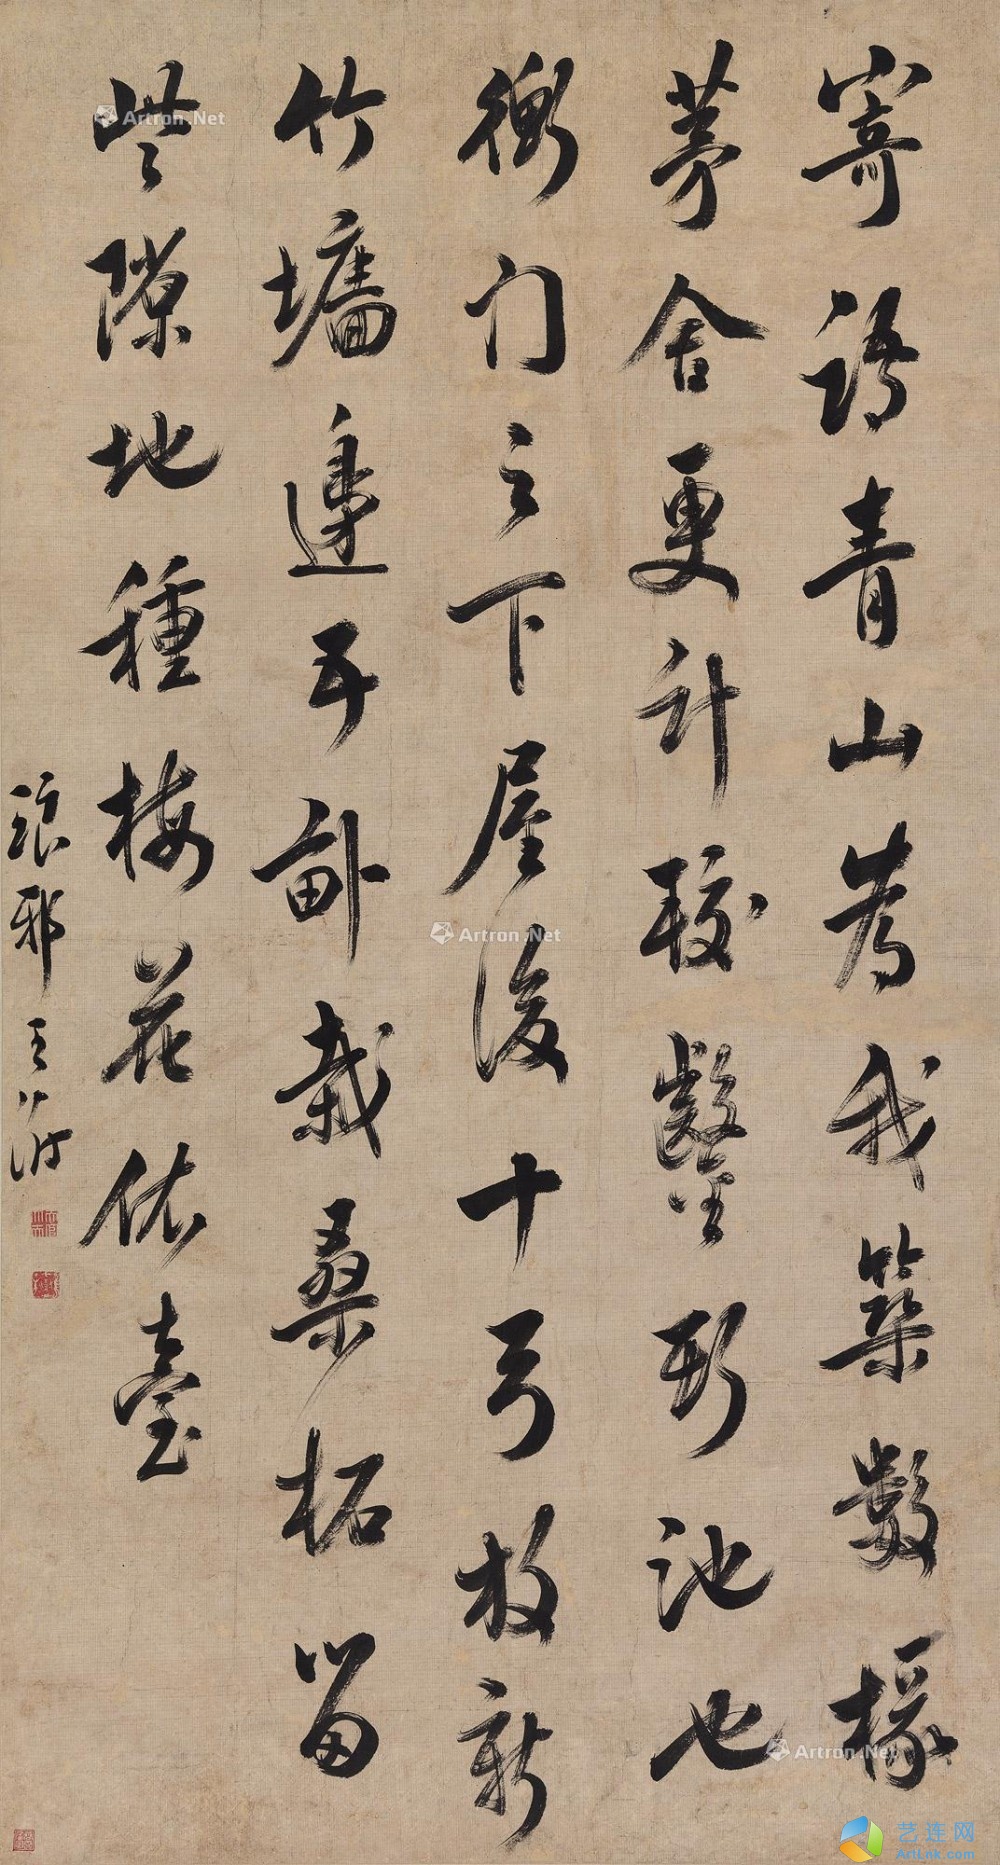 寄語青山為我築數椽
茅舍更計較鑿研池也
衡門之下屋後十弓放新
竹墻邊五畝栽桑柘留
些隙地種梅花依臺
琅邪王
Artron.Net
Artron.Net
Artron.Net
艺连网
ArtLnk.com